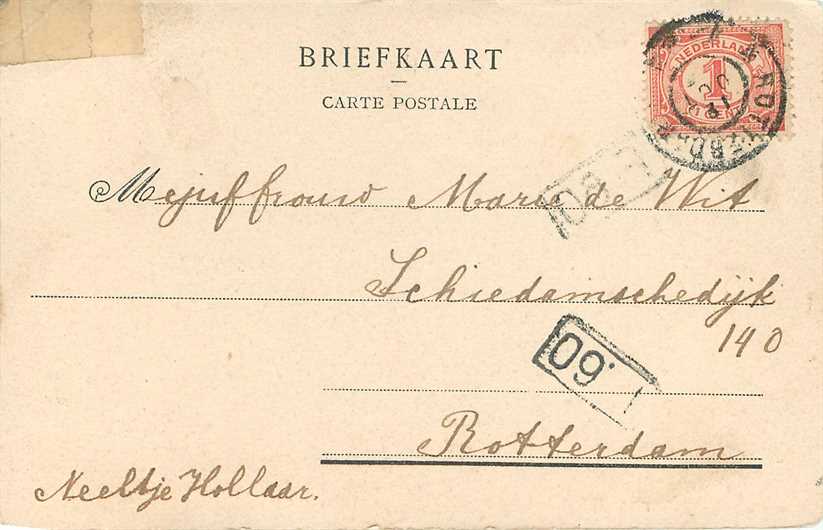 BRIEFKAART
CARTE POSTALE
NEDERLAND
1
Mejuffrouw Marie de Wit
Schiedamschedijk
140
60
Rotterdam
Neeltje Hollaar.